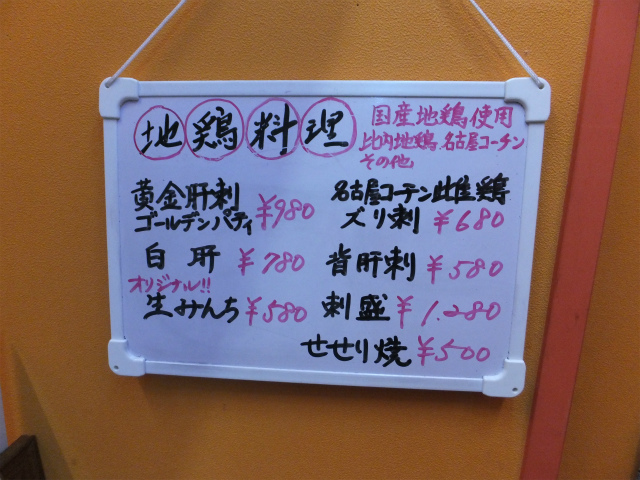 地鶏料理
国産地鶏使用
比内地鶏、名古屋コーチン
その他
黄金肝刺
ゴールデンパティ ¥980
白肝 ¥780
オリジナル!!
生みんち ¥580
名古屋コーチン雌鶏
ズリ刺 ¥680
背肝刺 ¥580
刺盛 ¥1.280
せせり焼 ¥500